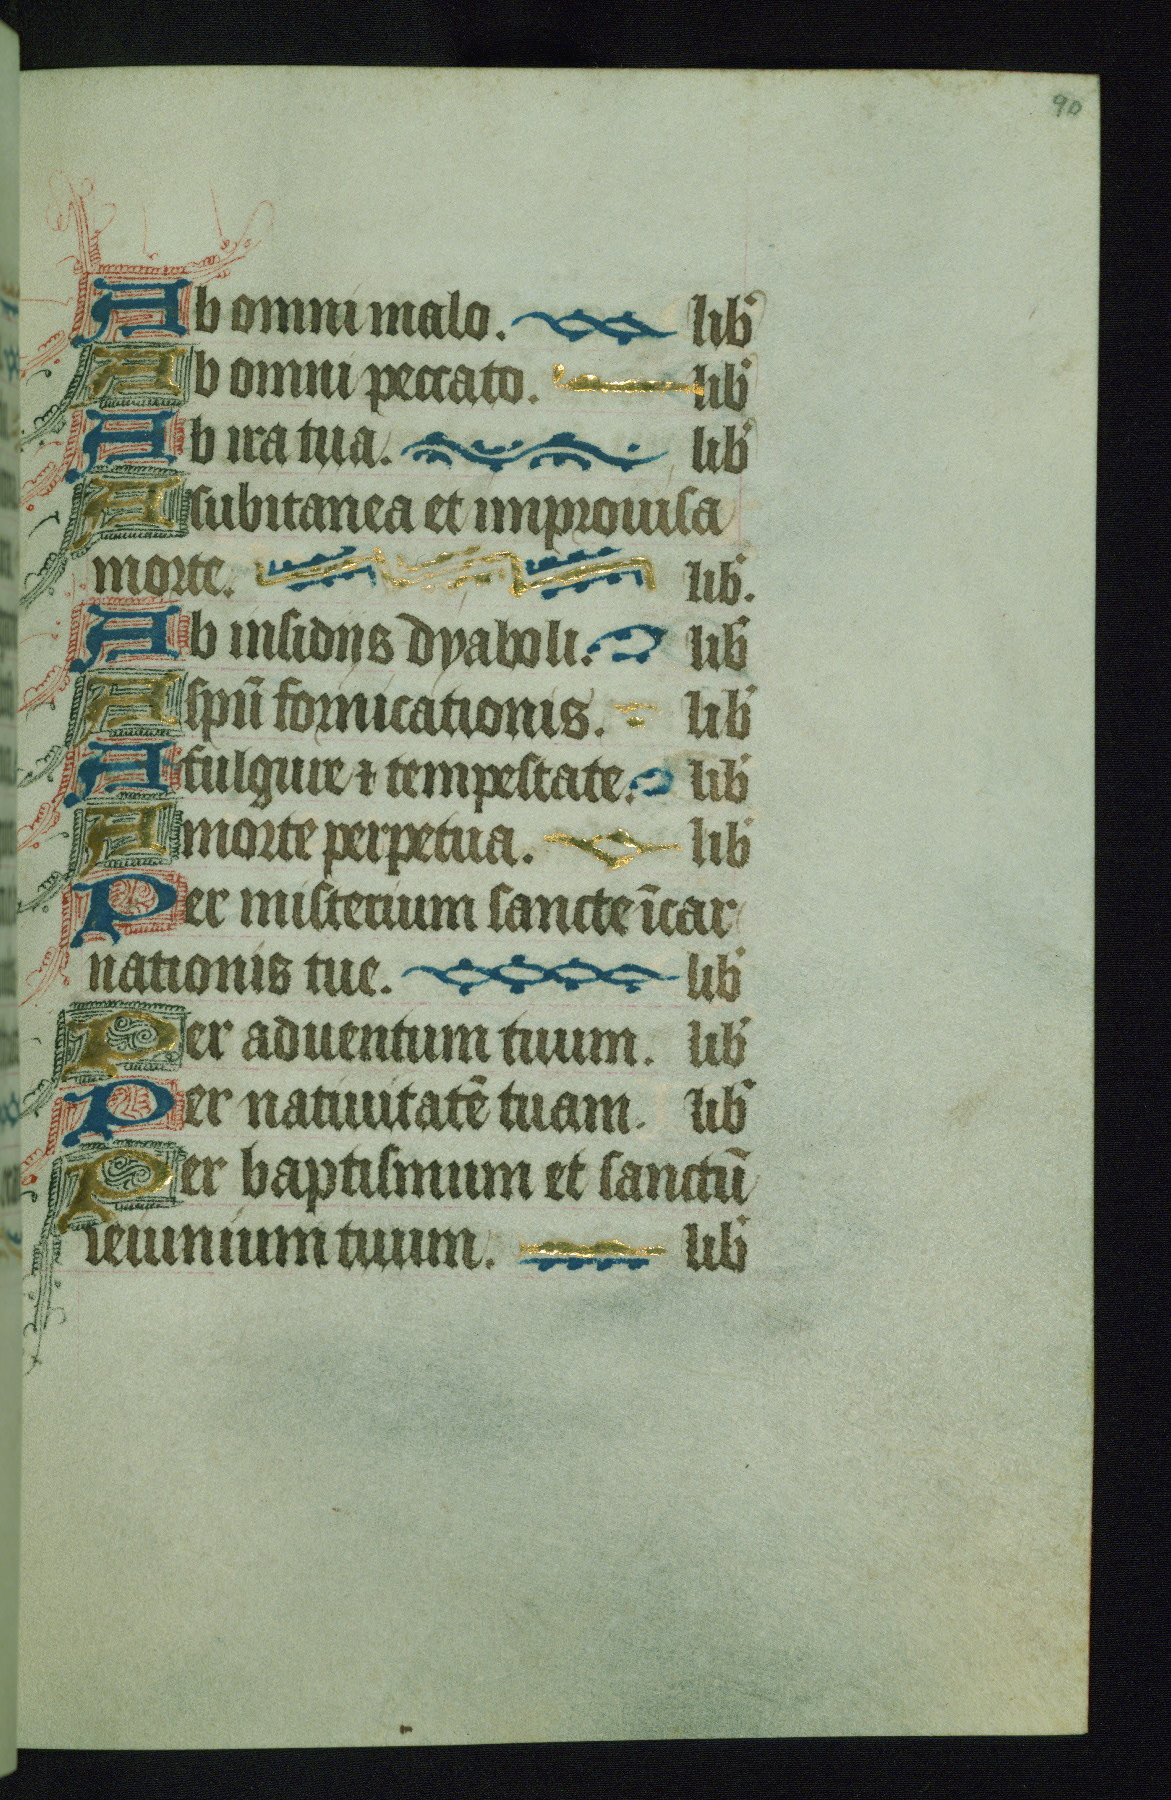 90
Ab omni malo. lib̃
Ab omni peccato. lib̃
Ab ira tua. lib̃
A subitanea et improuisa
morte. lib.
Ab insidiis dyaboli. lib̃
A spũ fornicationis. lib̃
A fulgure ⁊ tempestate. lib̃
A morte perpetua. lib̃
Per misterium sancte ĩcar
nationis tue. lib̃
Per aduentum tuum. lib̃
Per natiuitatẽ tuam. lib̃
Per baptismum et sanctũ
ieiunium tuum. lib̃